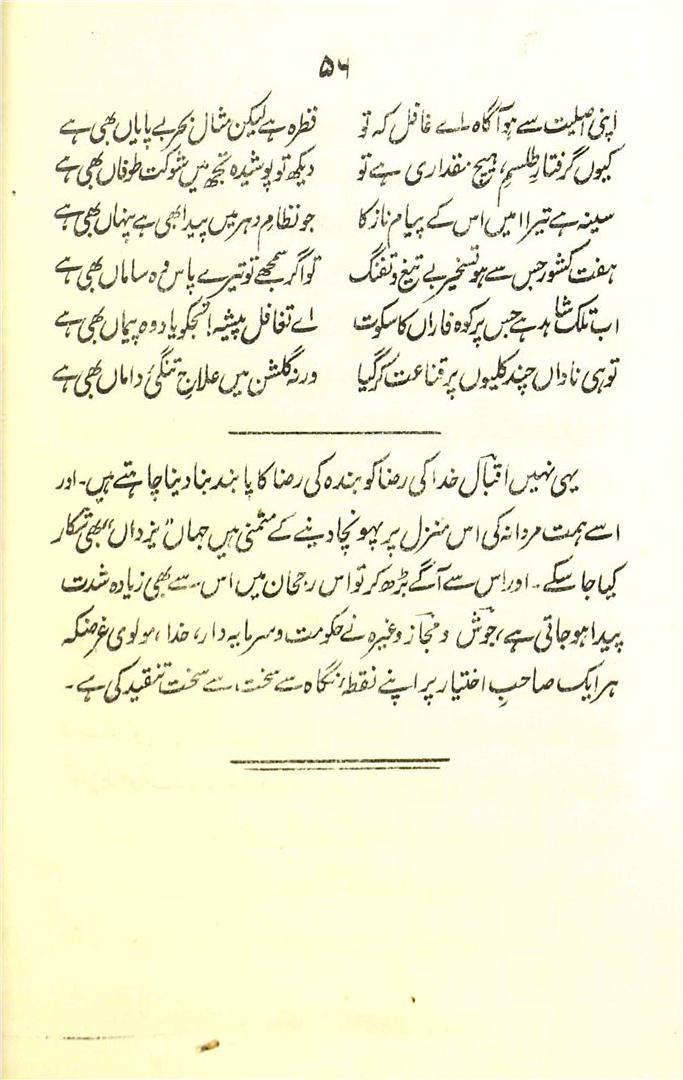 ۵۶
اپنی اصلیت سے ہو آگاہ اے غافل کہ تو قطرہ ہے لیکن مثال بحرِ بے پایاں بھی ہے
کیوں گرفتارِ طلسمِ ہیچ مقداری ہے تو دیکھ تو پوشیدہ تجھ میں شوکت طوفاں بھی ہے
سینہ ہے تیرا امیں اس کے پیام ناز کا جو نظامِ دہر میں پیدا بھی ہے پنہاں بھی ہے
ہفت کشور جس سے ہو تسخیر بے تیغ و تفنگ تو اگر سمجھے تو تیرے پاس وہ ساماں بھی ہے
اب تلک شاہد ہے جس پر کوہ فاراں کا سکوت اے تغافل پیشہ! تجکو یاد وہ پیماں بھی ہے
تو ہی ناداں چند کلیوں پر قناعت کر گیا ورنہ گلشن میں علاجِ تنگئ داماں بھی ہے
یہی نہیں اقبال خدا کی رضا کو بندہ کی رضا کا پابند بنا دینا چاہتے ہیں۔ اور
اسے ہمت مردانہ کی اس منزل پر پہونچا دینے کے متمنی ہیں جہاں "یزداں" بھی شکار
کیا جا سکے۔ اور اس سے آگے بڑھ کر تو اس رجحان میں اس سے بھی زیادہ شدت
پیدا ہو جاتی ہے، جوش و مجاز وغیرہ نے حکومت و سرمایہ دار، خدا، مولوی غرضکہ
ہر ایک صاحبِ اختیار پر اپنے نقطۂ نگاہ سے سخت سے سخت تنقید کی ہے۔